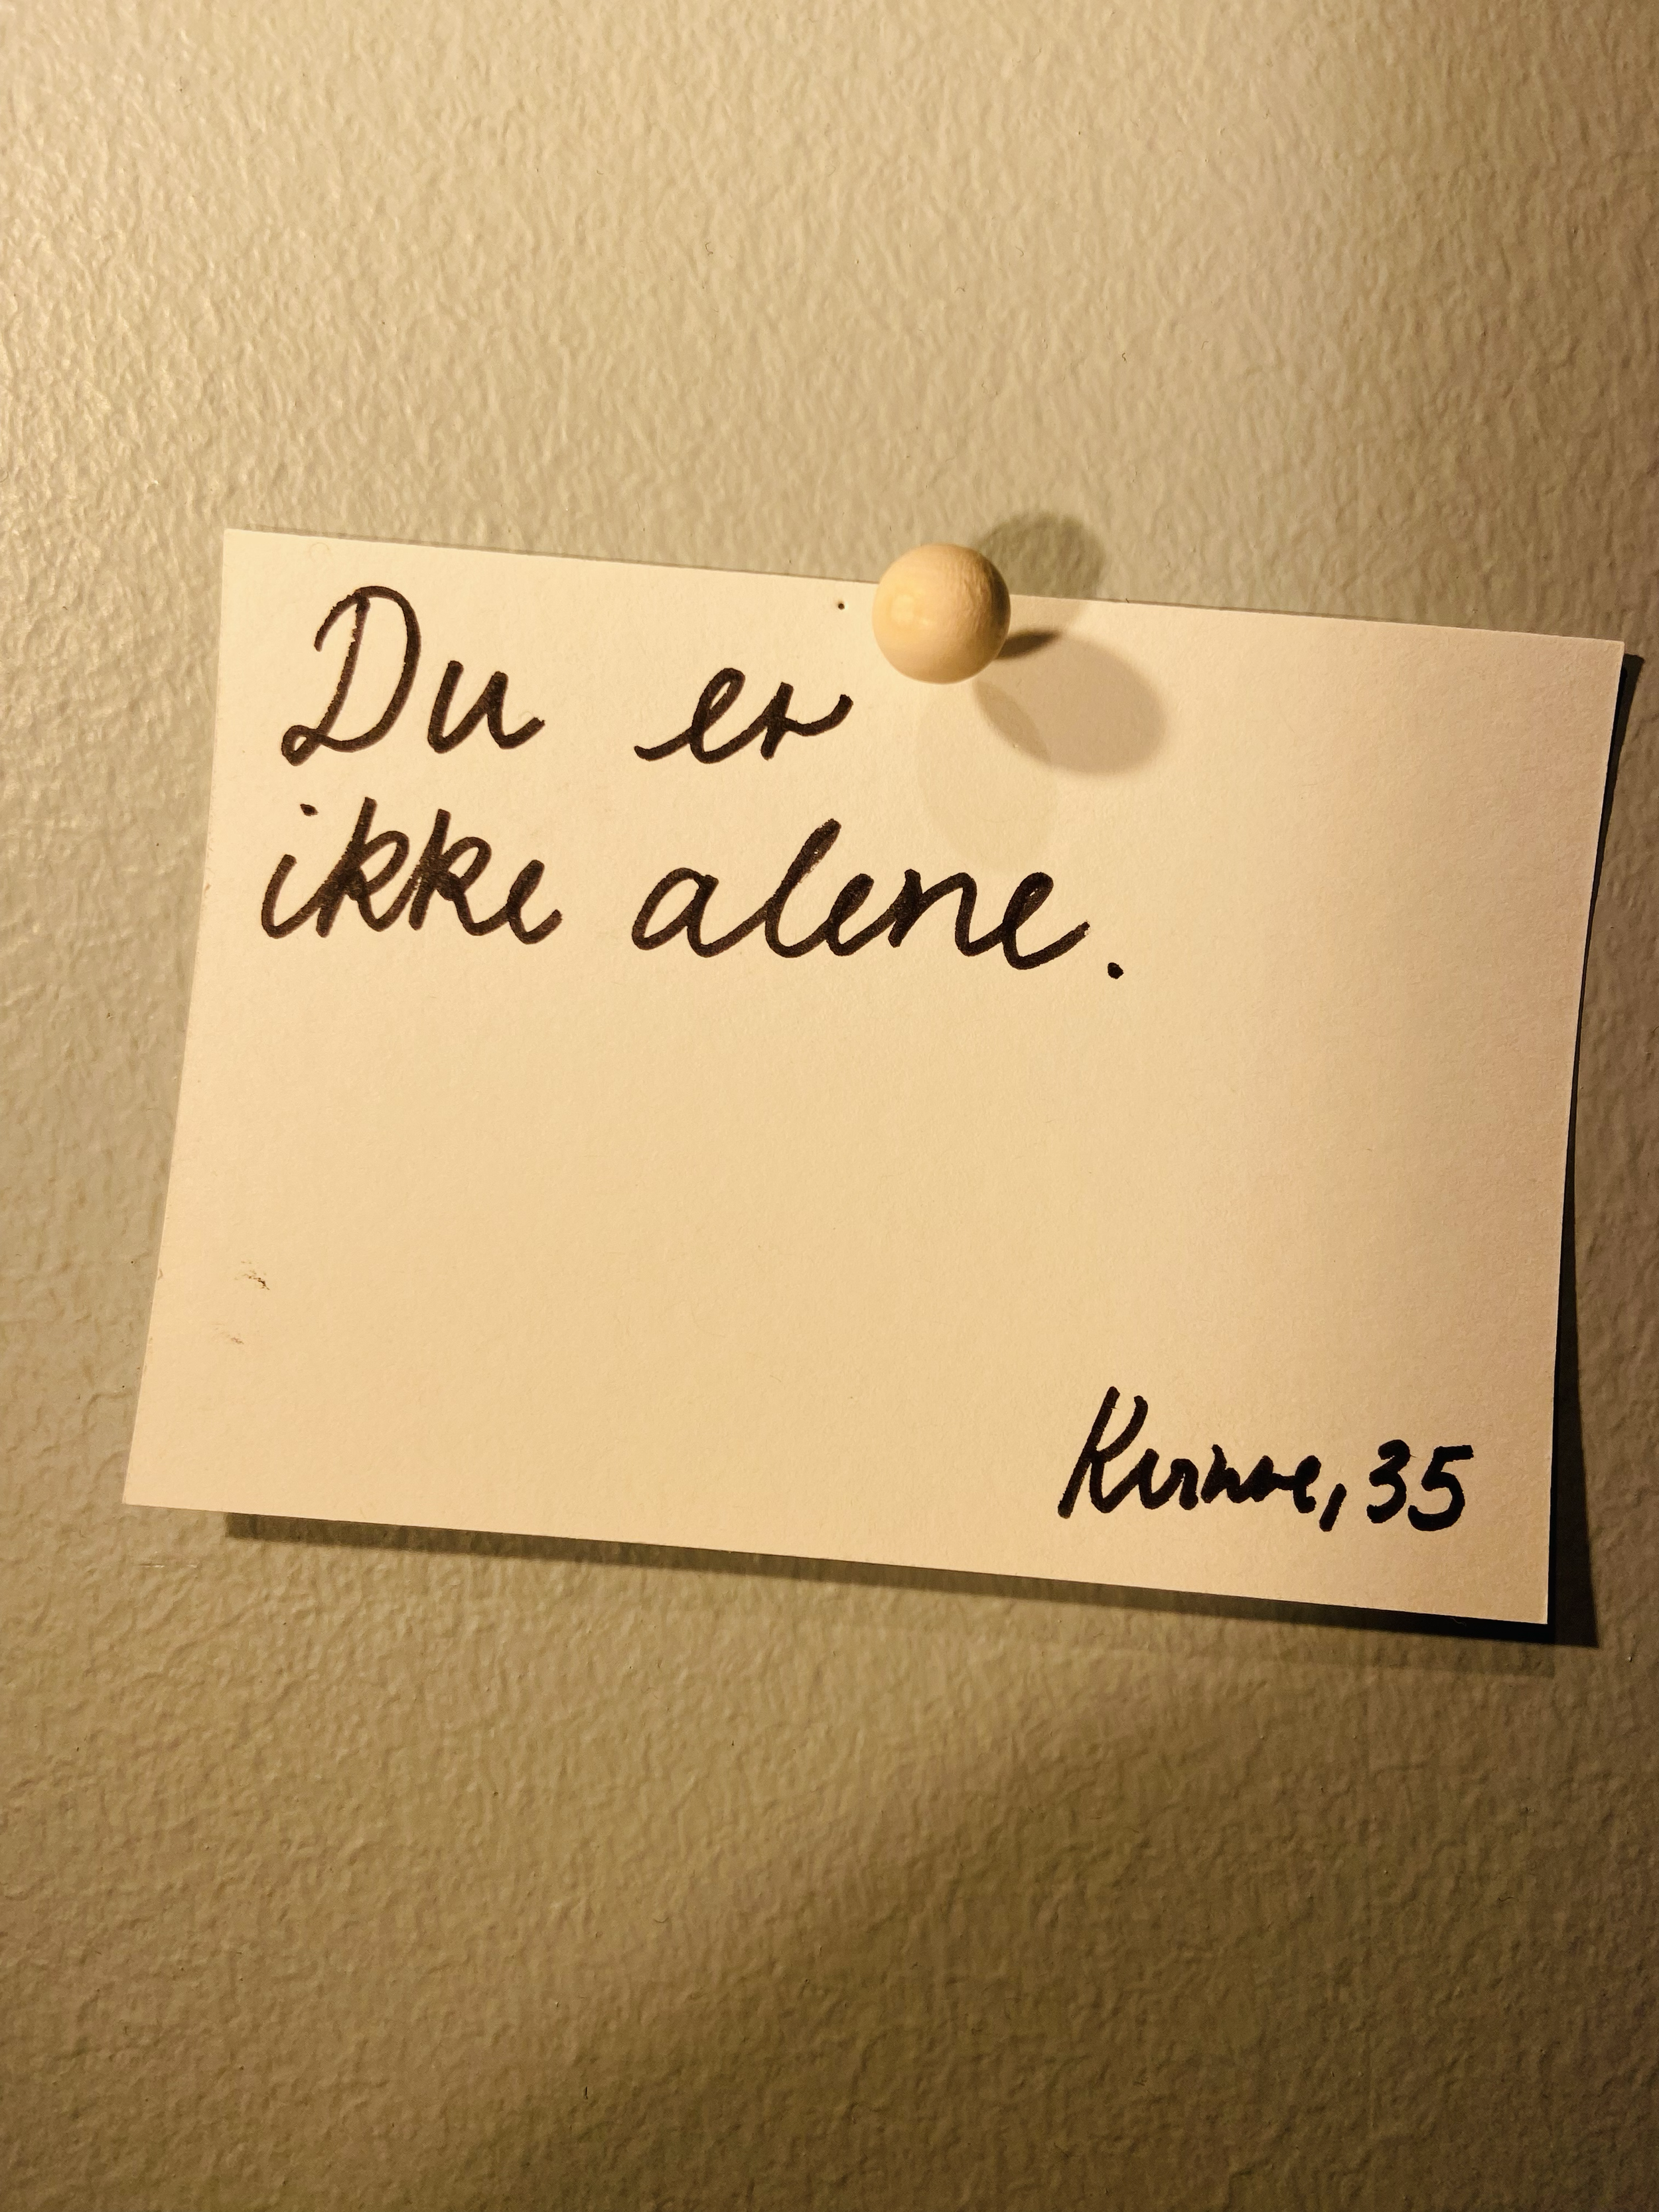 Du er
ikke alene.
Kvinne, 35